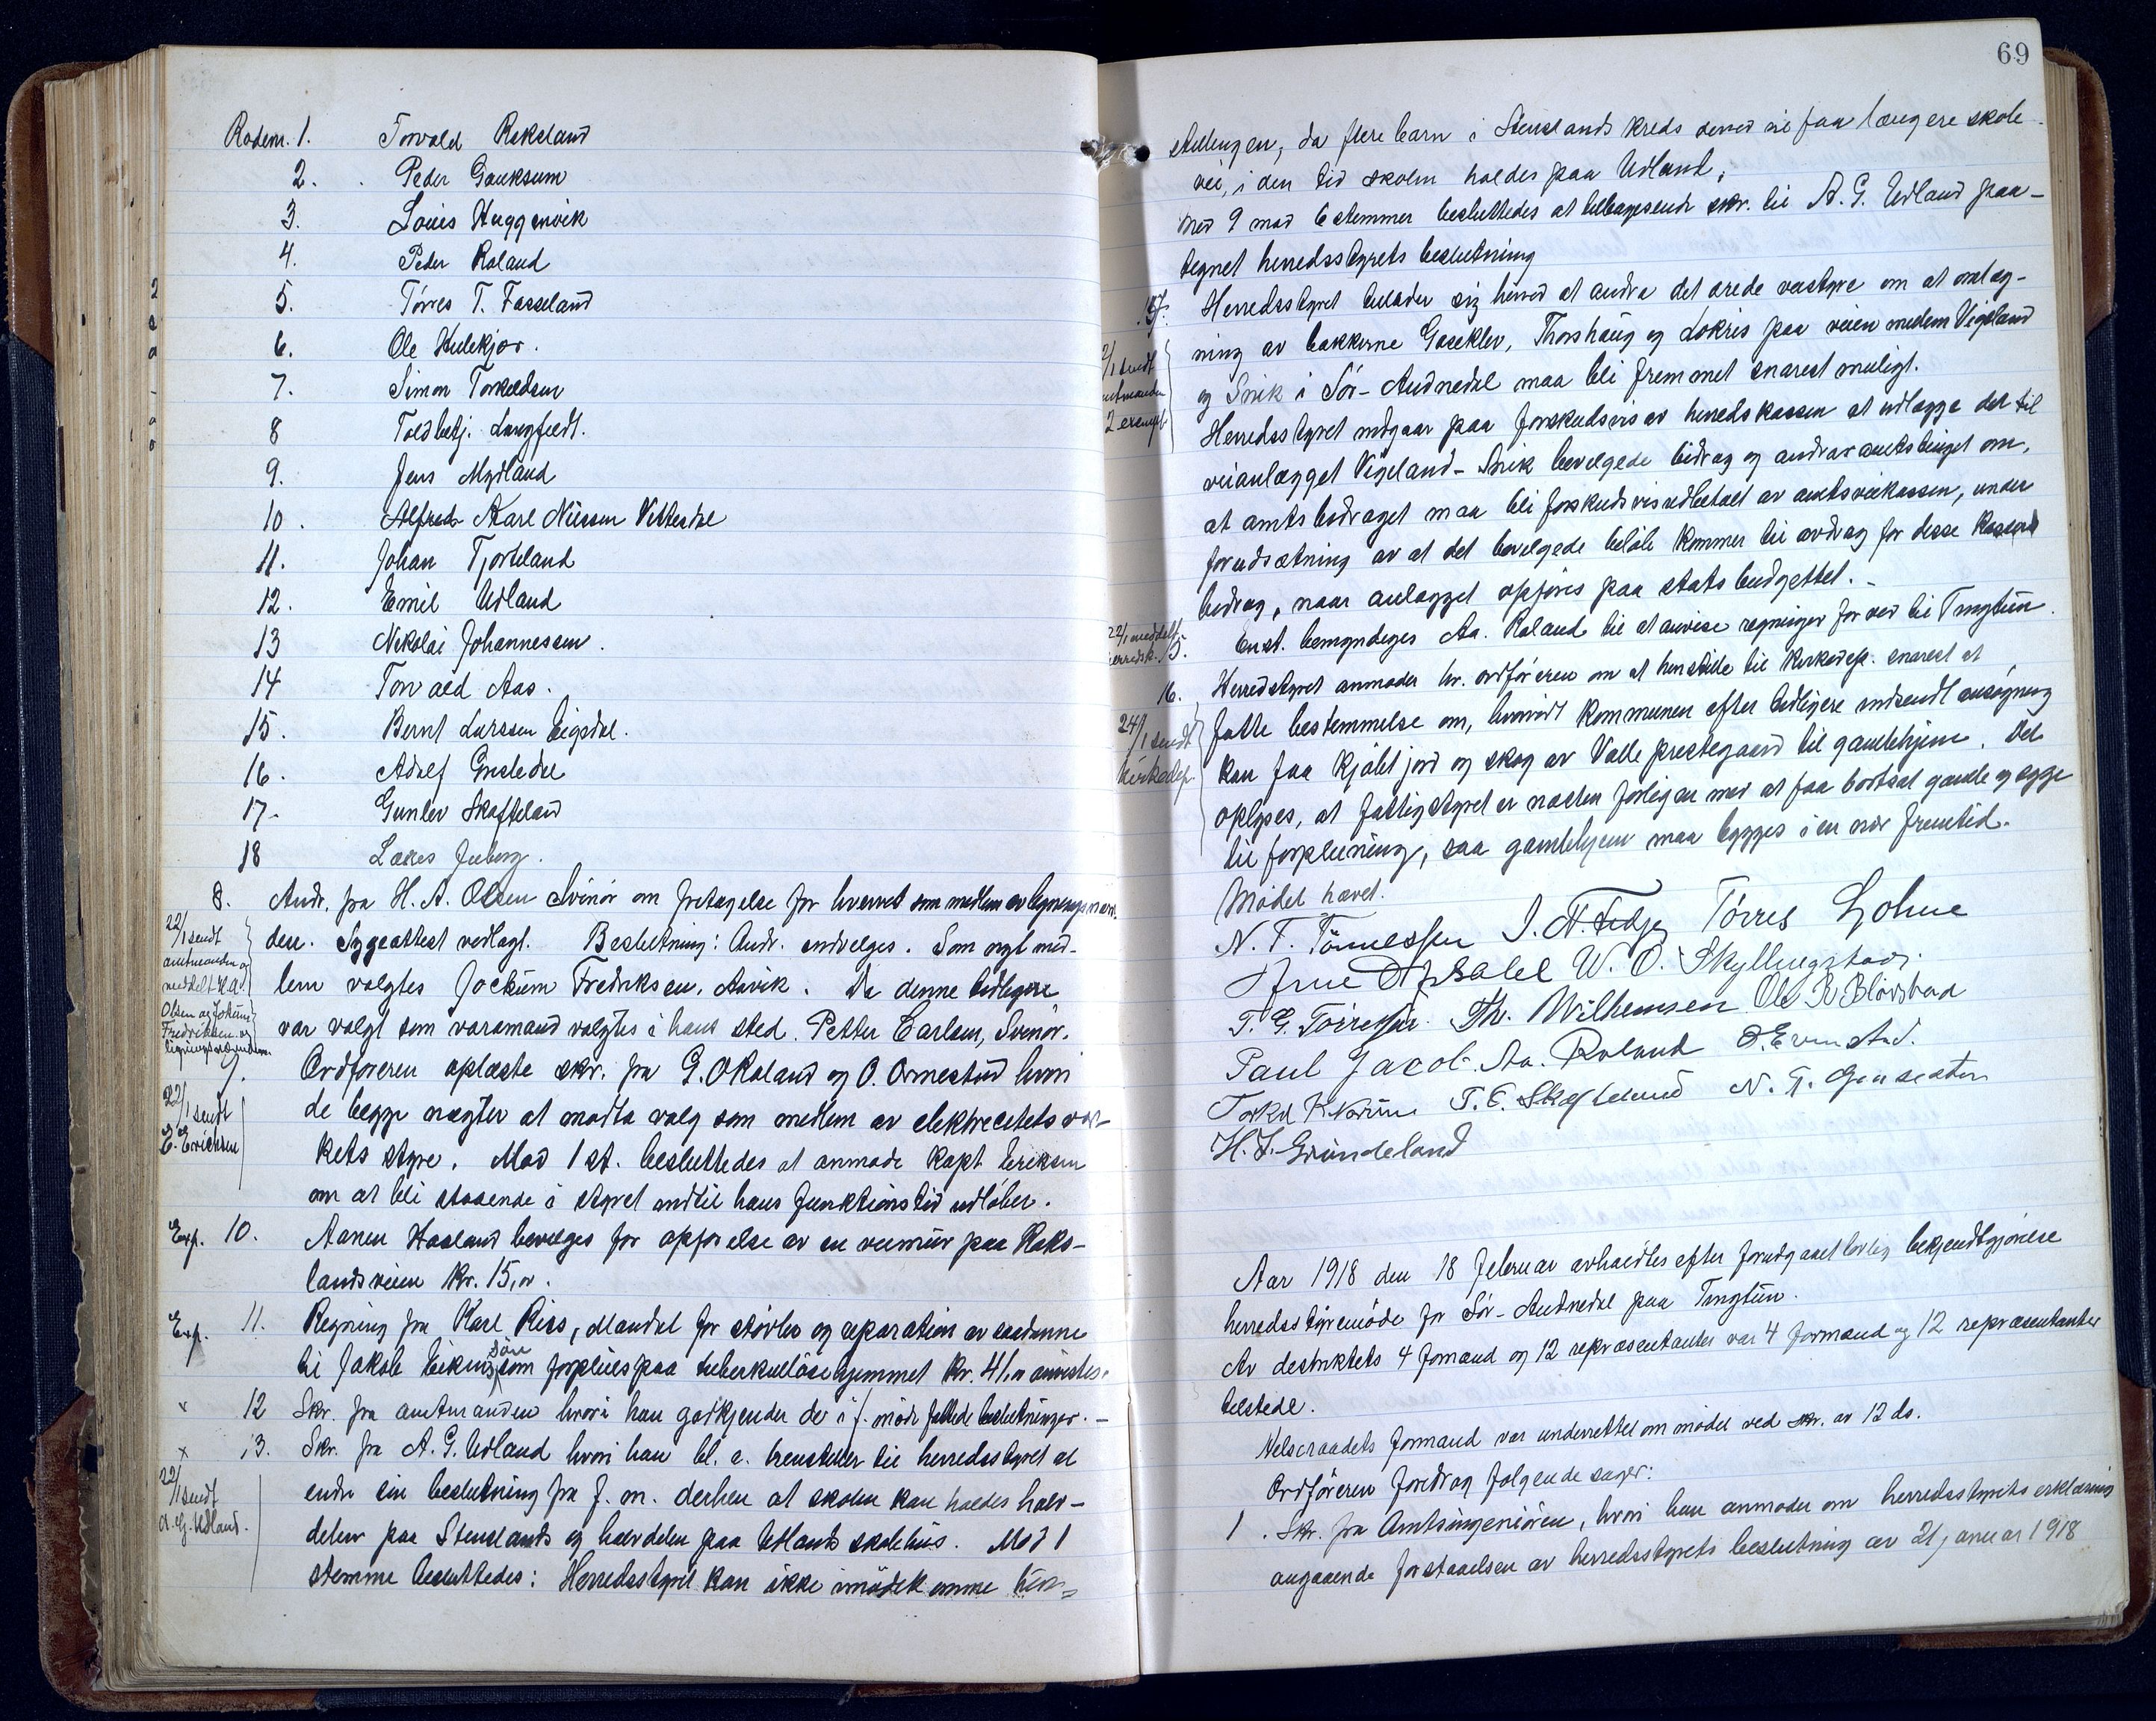 Rodem. 1. Torvald Rekeland
2. Peder Gauksum
3. Louis Huggenvik
4. Peder Roland
5. Tørres T. Fasseland
6. Ole Hulekjær.
7. Simon Torkeldsen
8 Toldbetj. Langfeldt.
9. Jens Mydland
10. Karl Nilssen Vetterdal
11. Johan Tjorteland
12. Emil Udland
13 Nikolai Johannessen.
14 Torvald Aas.
15. Bernt Larssen Eigedal.
16. Adolf Gresledal
17. Gunlev Skofteland
18 Lars Juberg.
8. Andr. fra H. A. Olsen Svinør om fritagelse for hvervet som medlem av ligningsnævn-
den. Sygeattest vedlagt. Beslutning: Andr. indvilges. Som nyt med-
lem valgtes Jockum Fredriksen, Aavik. Da denne tidligere
var valgt som varamand valgtes i hans sted. Petter Carlsen, Svinør.
22/1 sendt
amtmanden og
meddelt H.A.
Olsen og Jokum
Fredriksen og
ligningsnævnden.
9. Ordføreren oplæste skr. fra G. O Roland og O. Ormestad hvori
de begge nægter at motta valg som medlem av elektrecitetsvær-
kets styre. Mod 1 st. besluttedes at anmode kapt. Eriksen
om at bli staaende i styret indtil hans funktionstid utløber.
22/1 sendt
E. Erichsen
Exp. 10. Aanen Haaland bevilges for opførelse av en veimur paa Haks-
landsveien kr. 15,00.
Exp. 11. Regning fra Karl Reiss, Mandal for støvler og reparation av saadanne
til Jakob Eikens søn som forpleies paa tuberkulösehjemmet kr. 41,00 anvistes.
x 12 Skr. fra amtmanden hvori han godkjender de i f. møde fattede beslutninger. -
x 13. Skr. fra A. G. Udland hvori han bl. a. henstiller til herredsstyret at
endre sin beslutning fra f. m. derhen at skolen kan holdes halv-
delen paa Stenslands og halvdelen paa Udlands skolehus. Mod 1
stemme besluttedes: Herredsstyret kan ikke imødekomme hen-
22/1 sendt
A. G. Udland.
69
stillingen, da flere barn i Stenslands kreds derved vil faa længere skole
vei, i den tid skolen holdes paa Udland.
Med 9 mod 6 stemmer besluttedes at tilbagesende skr. til A. G. Udland paa-
tegnet herredsstyrets beslutning
Herredsstyret tillader sig herved at andra det ærede veistyre om at omlæg-
ning av bakkerne Gaseklev, Thorshaug og Lokris paa veien mellem Vigeland
og Snik i Sør-Audnedal maa bli fremmet snarest muligt.
Herredsstyret indgaar paa forskudsvis av herredskassen at utlægge det til
veianlægget Vigeland-Snik bevilgede bidrag og andrar amtstinget om,
at amtsbidraget maa bli forskudsvis udbetalt av amtsveikassen, under
forudsætning av at det bevilgede beløb kommer til avdrag for disse kassers
bidrag, naar anlægget opføres paa statsbudgettet. -
2/1 sendt
amtmanden
2 exempl.
22/1 meddelt
herredsk. 15. Enst. bemyndiges Aa. Roland til at anvise regninger for ved til Tingtun.
16. Herredstyret anmoder hr. ordføreren om at henstille til kirkedep. snarest at
fatte bestemmelse om, hvorvidt kommunen efter tidligere indsendt ansøgning
kan faa kjøbt jord og skog av Valle prestegaard til gamlehjem. Det
oplyses, at fattigstyret er næsten forlegen med at faa bortsat gamle og syge
til forpleining, saa gamlehjem maa bygges i en nær fremtid.
24/1 sendt
kirkedep.
Mødet hævet.
N. T. Tönnessen J. A. Fidje Törres Lohne
Arne W. O. Skyllingstad.
T. G. Törressen. Th. Wilhemsen Ole R Blörstad
Paul Jacob. Aa. Roland O. Evenstad.
Torkel K Norum T. E. Skofteland N. T. Gauseaten
H. J. Gründeland
Aar 1918 den 18 februar avholdtes efter forutgaaet lovlig bekjendtgjørelse
herredsstyremøde for Sør-Audnedal paa Tingtun.
Av destriktets 4 formænd og 12 repræsentanter var 4 formænd og 12 repræsentanter
tilstede.
Velseraadets formand var underrettet om mødet ved skr. av 12 ds.
Ordføreren foredrog følgende sager:
1. Skr. fra Amtsingeniøren, hvori han anmoder om herredsstyrets erklæring
angaaende forstaaelsen av herredsstyrets beslutning av 21 januar 1918